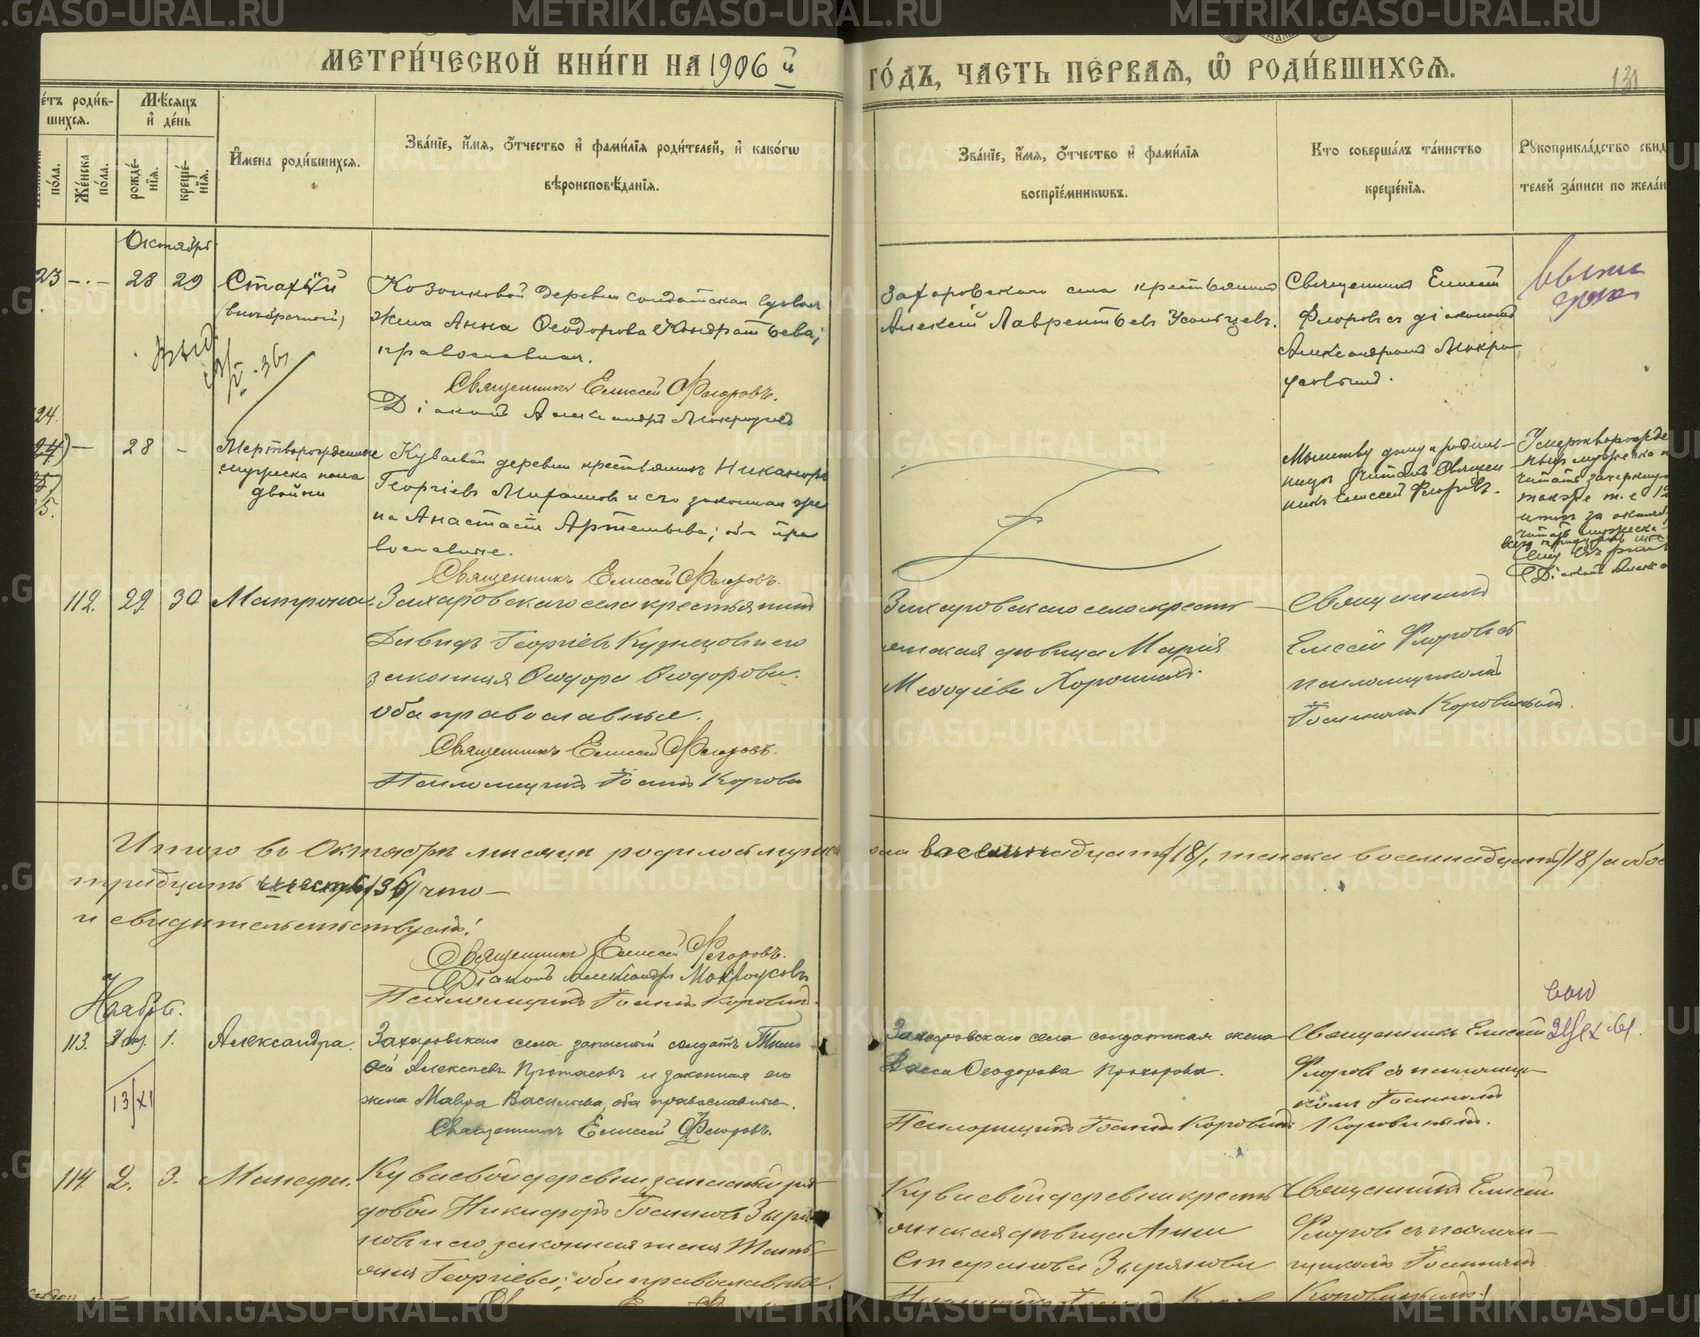 МЕТРИ́ЧЕСКОЙ КНИ́ГИ НА 1906 й
ГО́ДЪ, ЧАСТЬ ПЕ́РВАѦ, Ѡ РОДИ́ВШИХСѦ.
131
роди́в-
шихсѧ.
Мѣ́сѧцъ
и҆ де́нь
И҆мена роди́вшихсѧ.
Зва́нїе, и҆́мѧ, ѻ҆́тчество и҆ фами́лїѧ роди́телей, и҆ како́гѡ
вѣроисповѣ́данїѧ.
по́ла.
Же́нска
по́ла.
рожде́-
нїѧ.
креще́-
нїѧ.
Зва́нїе, и҆́мѧ, ѻ҆́тчество и҆ фами́лїѧ
воспрїе́мникѡвъ.
Кто соверша́лъ та́инство
креще́нїѧ.
Рꙋкоприкла́дство свид
телей за́писи по жела́н
Октябрь
23 — 28 29 Стахій
внѣбрачный,
Козонковой деревни солдатская вдовая
жена Анна Ѳеодорова Кондратьева,
православная.
Священникъ Елисей Флоровъ.
Діаконъ Александръ Мокроусовъ
Захаровскаго села крестьянинъ
Алексій Лаврентьевъ Усольцевъ.
Священникъ Елисей
Флоровъ съ діакономъ
Александромъ Мокро
усовымъ.
24.
28 - Мертворожденные
мужеска пола
двойни
Куваевой деревни крестьянинъ Никаноръ
Георгіевъ и его законная же
на Анастасія Артемьева; оба пра
вославные.
Священникъ Елисей Флоровъ.
Молитву дому и родиль-
ницѣ читалъ Священ
никъ Елисей Флоровъ.
112. 29 30 Матрона
Захаровскаго села крестьянинъ
Давидъ Георгіевъ Кузнецовъ и его
законная Ѳеодора Ѳеодорова.
оба православные.
Священникъ Елисей Флоровъ.
Псаломщикъ Іоаннъ Коровинъ
Захаровскаго села кресть-
янская дѣвица Марія
Меѳодіева
Священникъ
Елисей Флоровъ съ
псаломщикомъ
Іоанномъ Коровинымъ.
Итого въ Октябрѣ мѣсяцѣ родилось мужес
ка восемнадцать/18/, женска восемнадцать/18/ а обое
тридцать шесть/36/ что —
и свидѣтельствуемъ:
Священникъ Елисей Флоровъ.
Діаконъ Александръ Мокроусовъ
Псаломщикъ Іоаннъ Коровинъ.
Ноябрь.
113. 1. Александра.
Захаровскаго села запасный солдатъ Тимо
ѳей Алексѣевъ Протасовъ и законная его
жена Мавра Васильева, оба православные.
Священникъ Елисей Флоровъ.
13/XI
Захаровскаго села солдатская жена
Васса Ѳеодорова Прохорова.
Псаломщикъ Іоаннъ Коровинъ.
Священникъ Елисей
Флоровъ съ псаломщи-
комъ Іоанномъ
Коровинымъ.
114. 2. 3.
Куваевой деревни запасный ря
довой Никифоръ Іоанновъ Зыря
новъ и его законная жена Тать-
яна Георгіева; оба православные.
Куваевой деревни кресть
янская дѣвица Анна
Стефанова Зырянова
Священникъ Елисей
Флоровъ съ псалом-
щикомъ Іоанномъ
Коровинымъ.
METRIKI.GASO-URAL.RU